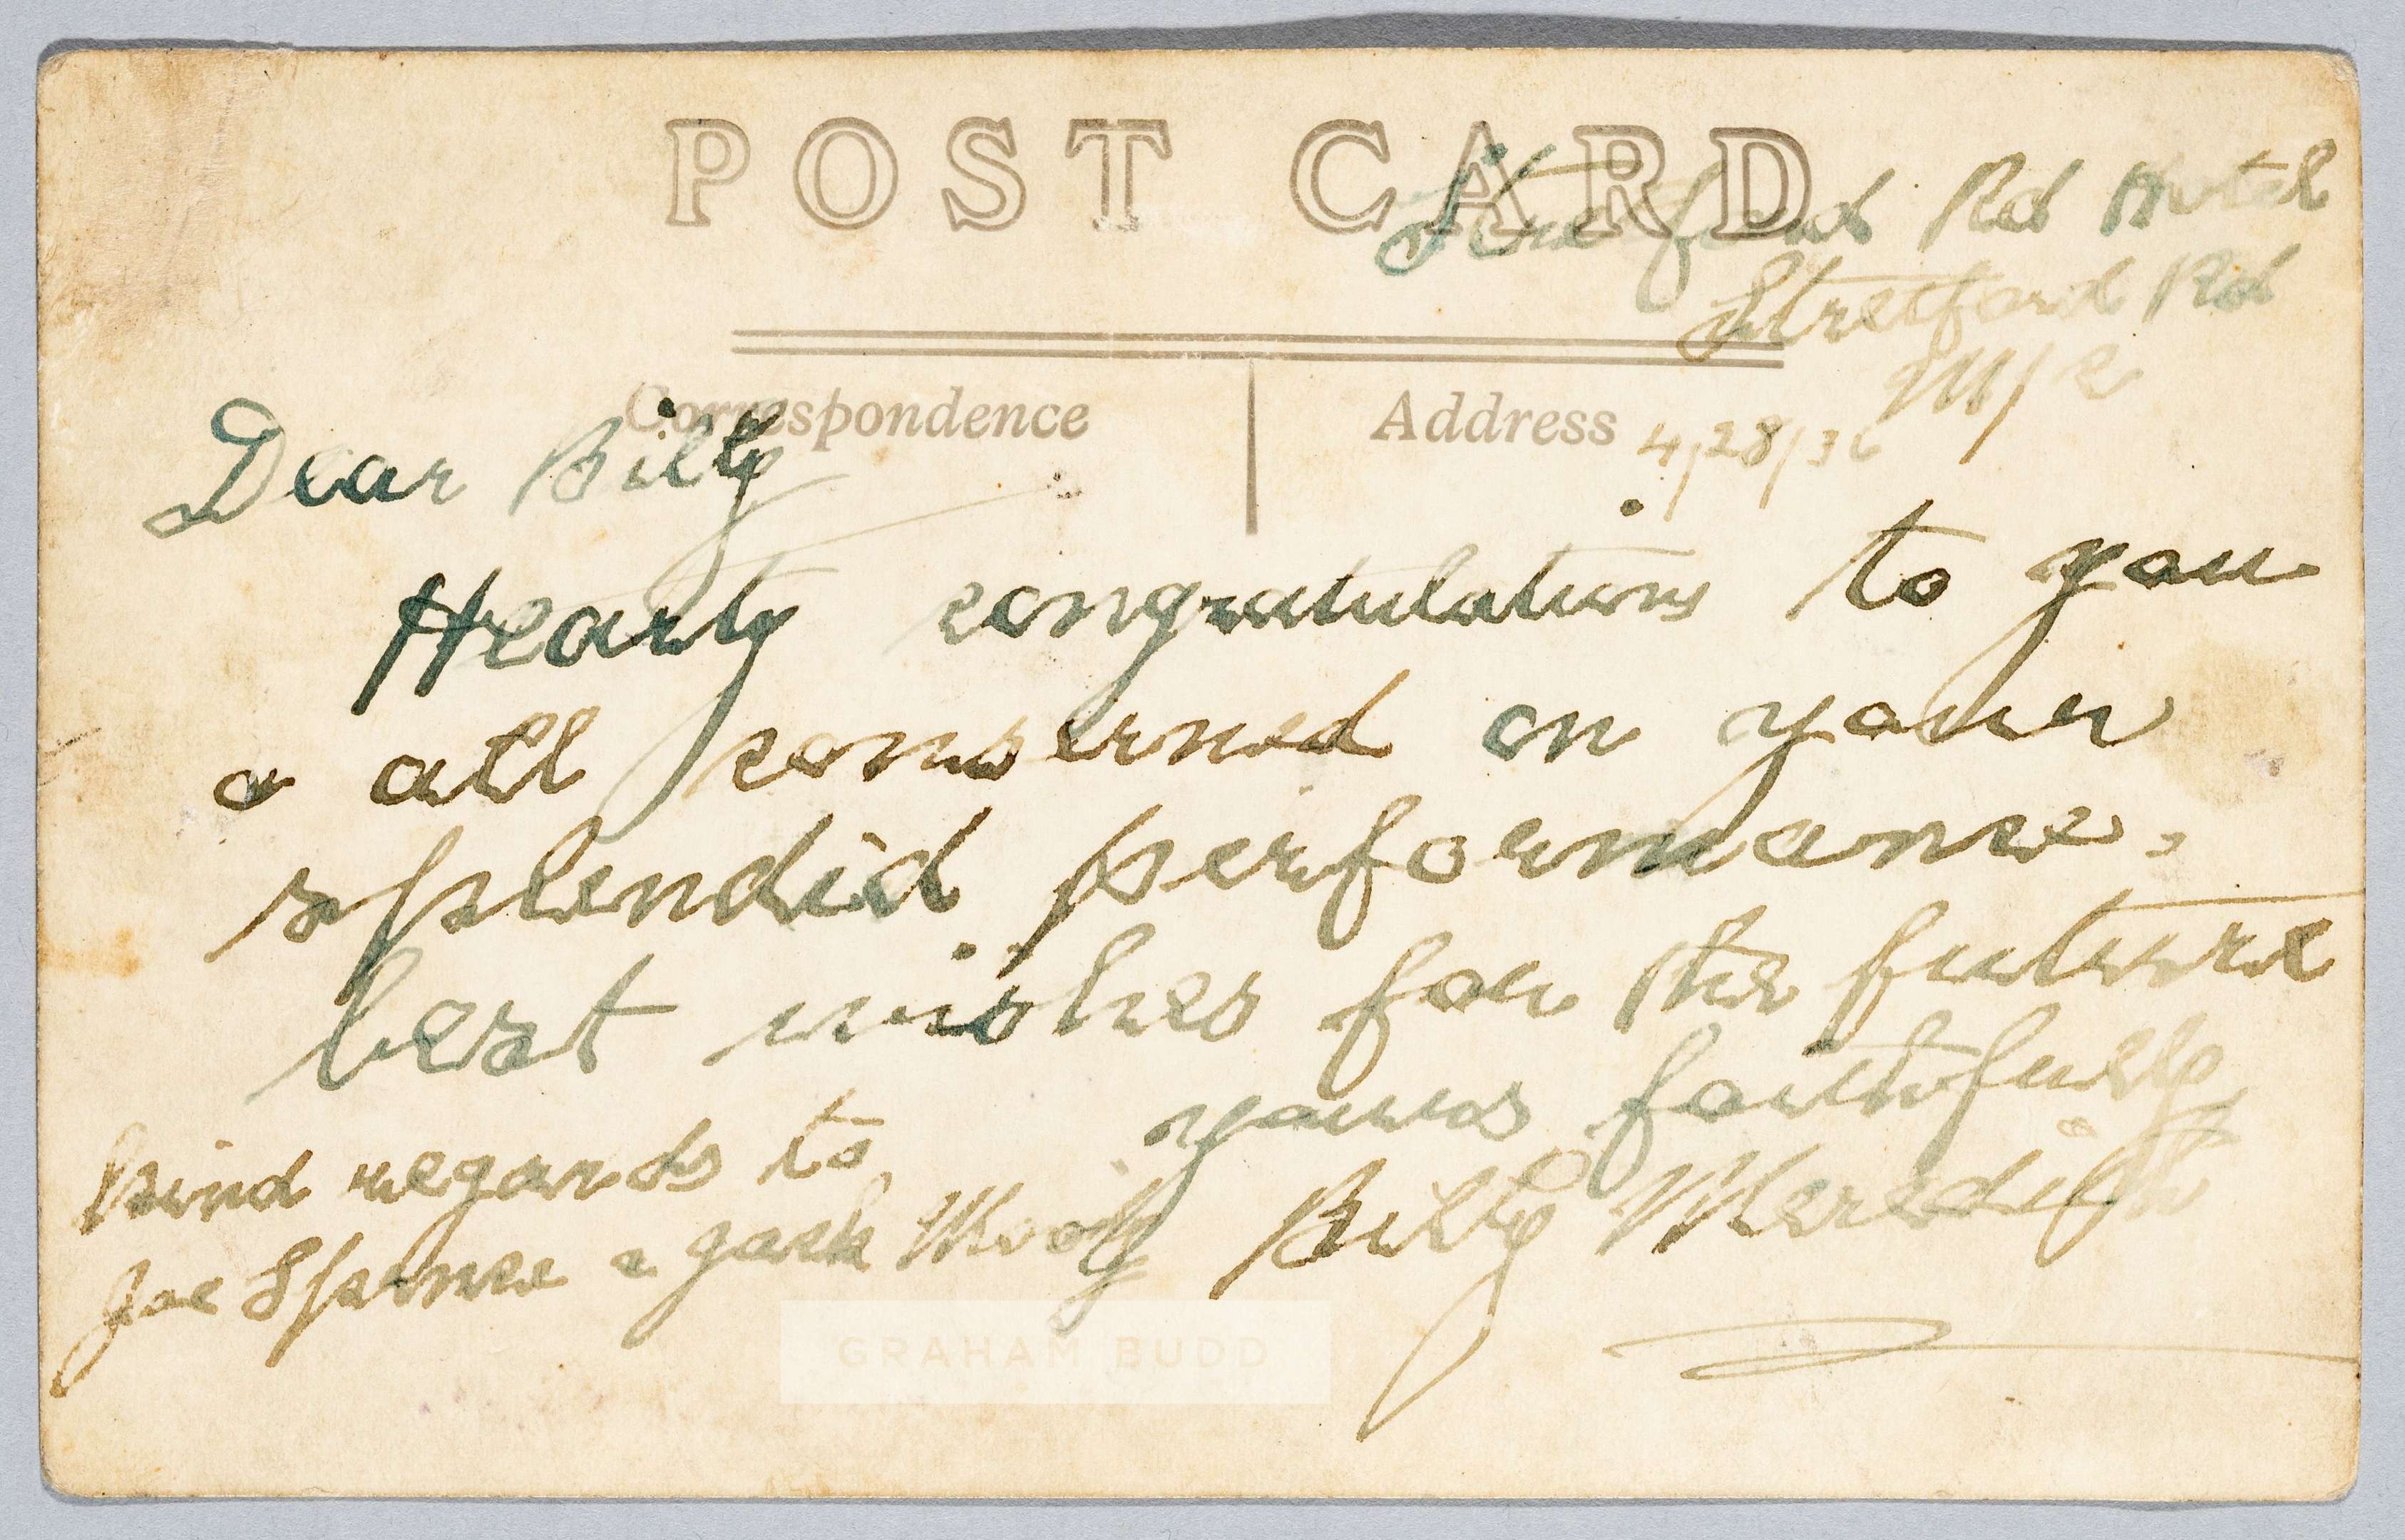 POST CARD
Stretford Rd Hotel
Stretford Rd
M/c
4/28/36
Correspondence
Address
Dear Billy
Hearty congratulations to you
& all concerned on your
splendid performance.
best wishes for the future
yours faithfully
Billy Meredith
Kind regards to
Joe Spence & Jack
GRAHAM BUDD